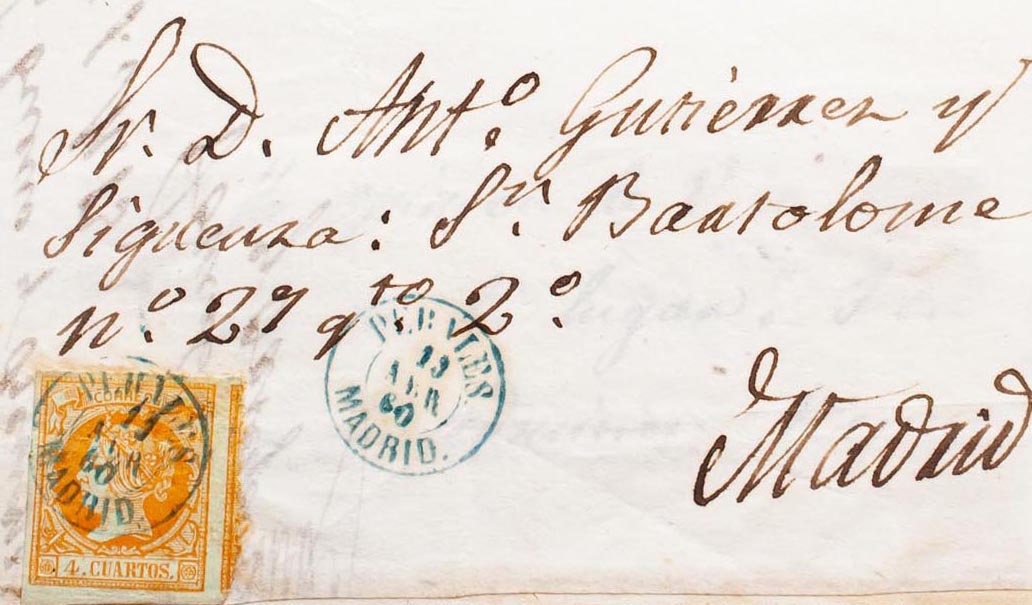 Sr. D. Antº. Gutierrez y
Siguenza: Sn. Bartolome
nº. 27 qto 2º.
Madrid
PERALES
19
ABR
60
MADRID.
CORREOS
11
ABR
60
MADRID
4. CUARTOS.